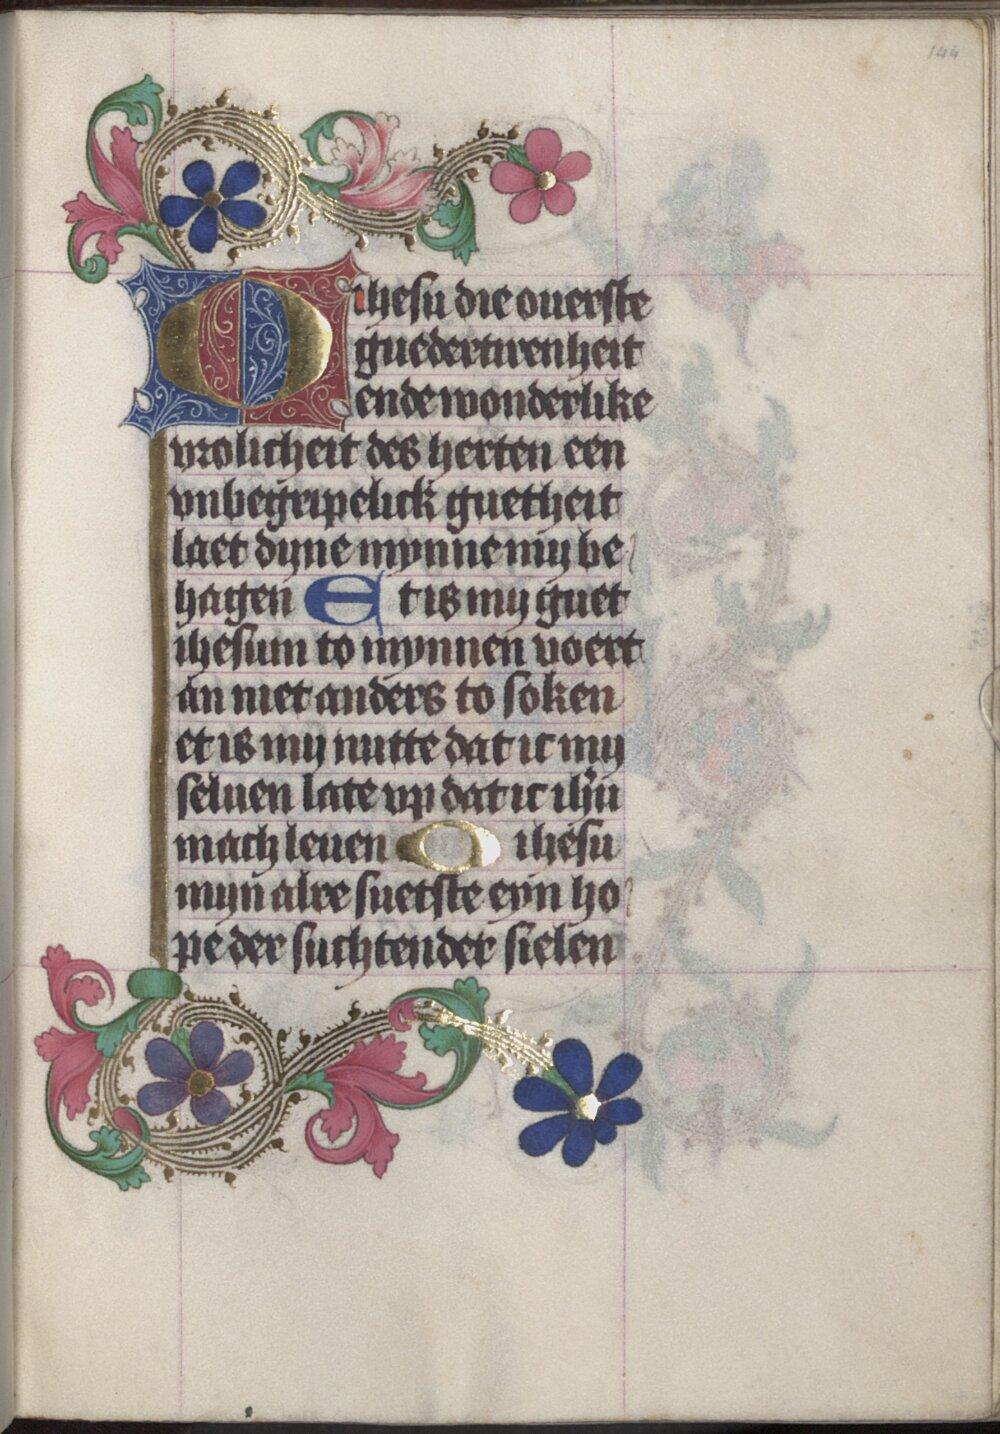 144
O ihesu die ouerste
guedertirenheit
ende wonderlike
vrolicheit des herten een
vnbegripelick guetheit
laet dyne mynne my be
hagen Et is my guet
ihesum to mynnen voert
an niet anders to soken
et is my nutte dat ic my
seluen late vp dat ic ihu̅
mach leuen O ihesu
myn alre suetste eyn ho
pe der suchtender sielen